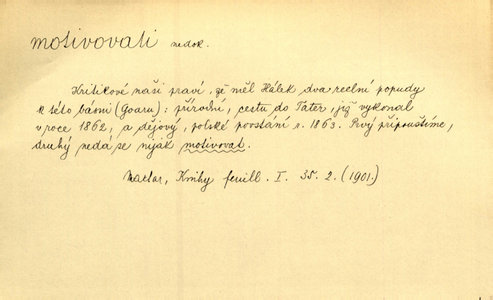 motivovati nedok.
Kritikové naši praví, že měl Hálek dva reelní popudy
k této básni (Goaru): přírodní, cestu do Tater, již vykonal
v roce 1862, a dějový, polské povstání r. 1863. Prvý připouštíme,
druhý nedá se nijak motivovat.
Machar, Knihy feuill. I. 35. 2. (1901.)